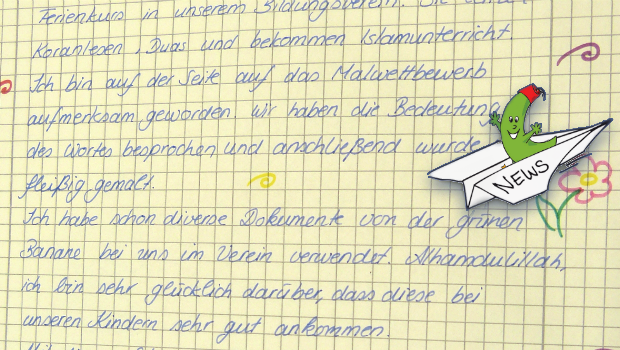 Ferienkurs in unserem Bildungsverein. Die
Koranlesen, Duas und bekommen Islamunterricht.
Ich bin auf der Seite auf das Malwettbewerb
aufmerksam geworden. Wir haben die Bedeutung
des Wortes besprochen und anschließend wurde
fleißig gemalt.
NEWS
Ich habe schon diverse Dokumente von der grünen
Banane bei uns im Verein verwendet. Alhamdulillah,
ich bin sehr glücklich darüber, dass diese bei
unseren Kindern sehr gut ankommen.